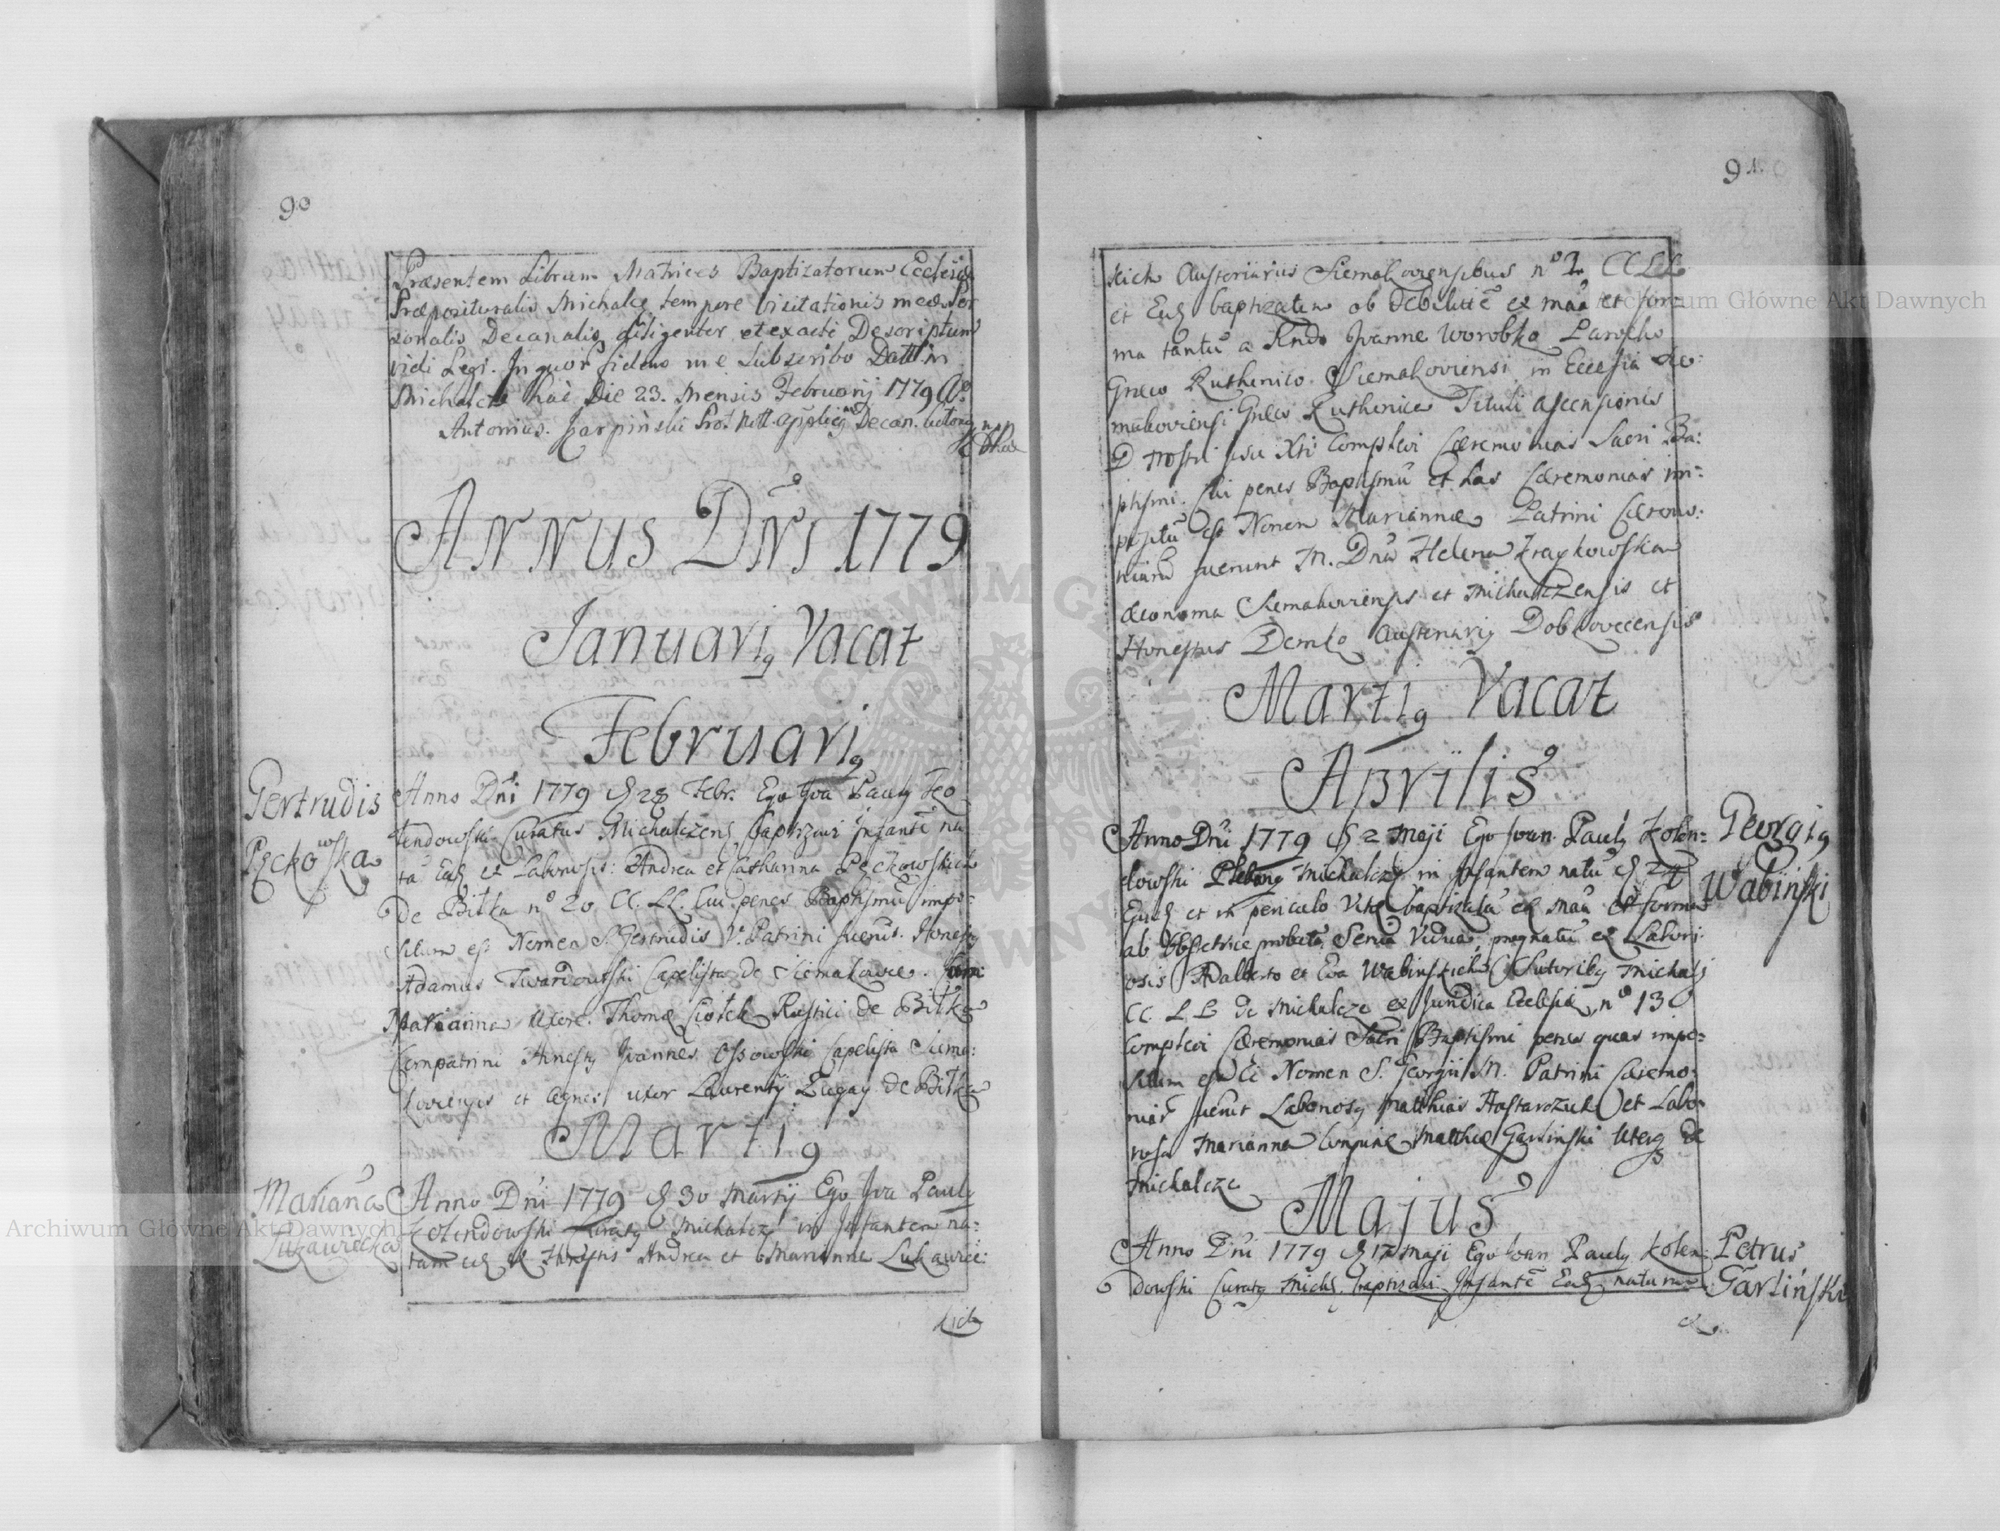 90
Præsentem Librum Matrices Baptizatorum Ecclesiæ
Præposituralis Michalcz tempore visitationis meæ Per
sonalis Decanalis diligenter et exacte Descriptum
vidi Legi. In quor fidem me Subscribo Datt in
Michalcze hac Die 23. Mensis Februarij 1779 Ao
Antonius Karpiński Prot. Nott. Applicus Decan.
Annus Dni 1779
Januari9 Vacat
Februari9
Gertrudis
Pęckowska
Anno Dni 1779 d 28 Febr. Ego Joa Pauly Ko
lendowski Curatus Michalczens baptizavi Infantē na
tā Ead ex Laboriosis: Andrea et Catharina Pęckowskich
De Bilka no 20 CC. LL. Cui penes Baptismū impo-
situm est Nomen S. Gertrudis V. Patrini fuerūt. Honesty
Adamus Twardowski Capelista de Siemakowce.
Marianna Uxore Thomæ Ciołek Rustici de Bilka
Compatrini Honesty Joannes Ossowski Capelista Siema-
koviensis et Agnes uxor Laurentij Zugay de Bilka
Marti9
Mariāna
Lukawiecka
Anno Dni 1779 d 30 Martij Ego Joa Pauly
Kolendowski Curaty Michalcz in Infantem na-
tam ead ex Honestis Andrea et Marianna Lukawiec-
kich
91.
kich Austeriariis Siemakoviensibus no 2 CC LL
et Ead baptizatam ob debilitē ex māa et for-
ma tantū a Rndo Joanne Worobko Parocho
Græco Ruthenico Siemakoviensi in Ecclesia Sie-
makoviensi Græco Ruthenica Tituli Ascensionis
D nostri Jesu Xti Complevi Cæremonias Sacri Ba-
ptismi. Cui penes Baptismū et has Cæremonias im-
positū est Nomen Mariannæ Patrini Cæremo-
niarū fuerunt M. Dna Helena Krajkowska
Œconoma Siemakoviensis et Michalczensis et
Honestus Demko Austerary Dobkovecensis
Marti9 Vacat
Aprilis
Georgi9
Wabiński
Anno Dni 1779 d 2 Maji Ego Joan Pauly Kolen-
dowski Plebany Michalczs in Infantem natū d 24
Ejusd et in periculo Vitæ baptizatū ex māa et forma
ab Obstetrice probata Senia Vidua, prognatū ex Labori
osis Adalberto et Eva Wabinskich Sutoriby Michalcz
CC. LL de Michalcze ex Juridica Ecclesiæ no 130
Complevi Cæremonias Sacri Baptismi penes quas impo-
situm est ei Nomen S. Georgii M. Patrini Cæremo-
niarū fuerūt Laboriosy Matthias Hastarczuk et Labo-
riosa Marianna Conjunx Matthiæ Garlinski Uterq de
Michalcze
Majus
Petrus
Garliński
Anno Dni 1779 d 17 Maji Ego Joan Pauly Kolen-
dowski Curaty Michl. baptizavi Infantē Ead natum